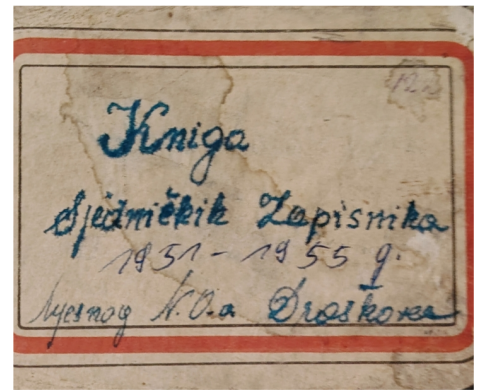 12.
Kniga
Sjedničkih Zapisnika
1951-1955 g.
Mjesnog N.O.a Droškovca